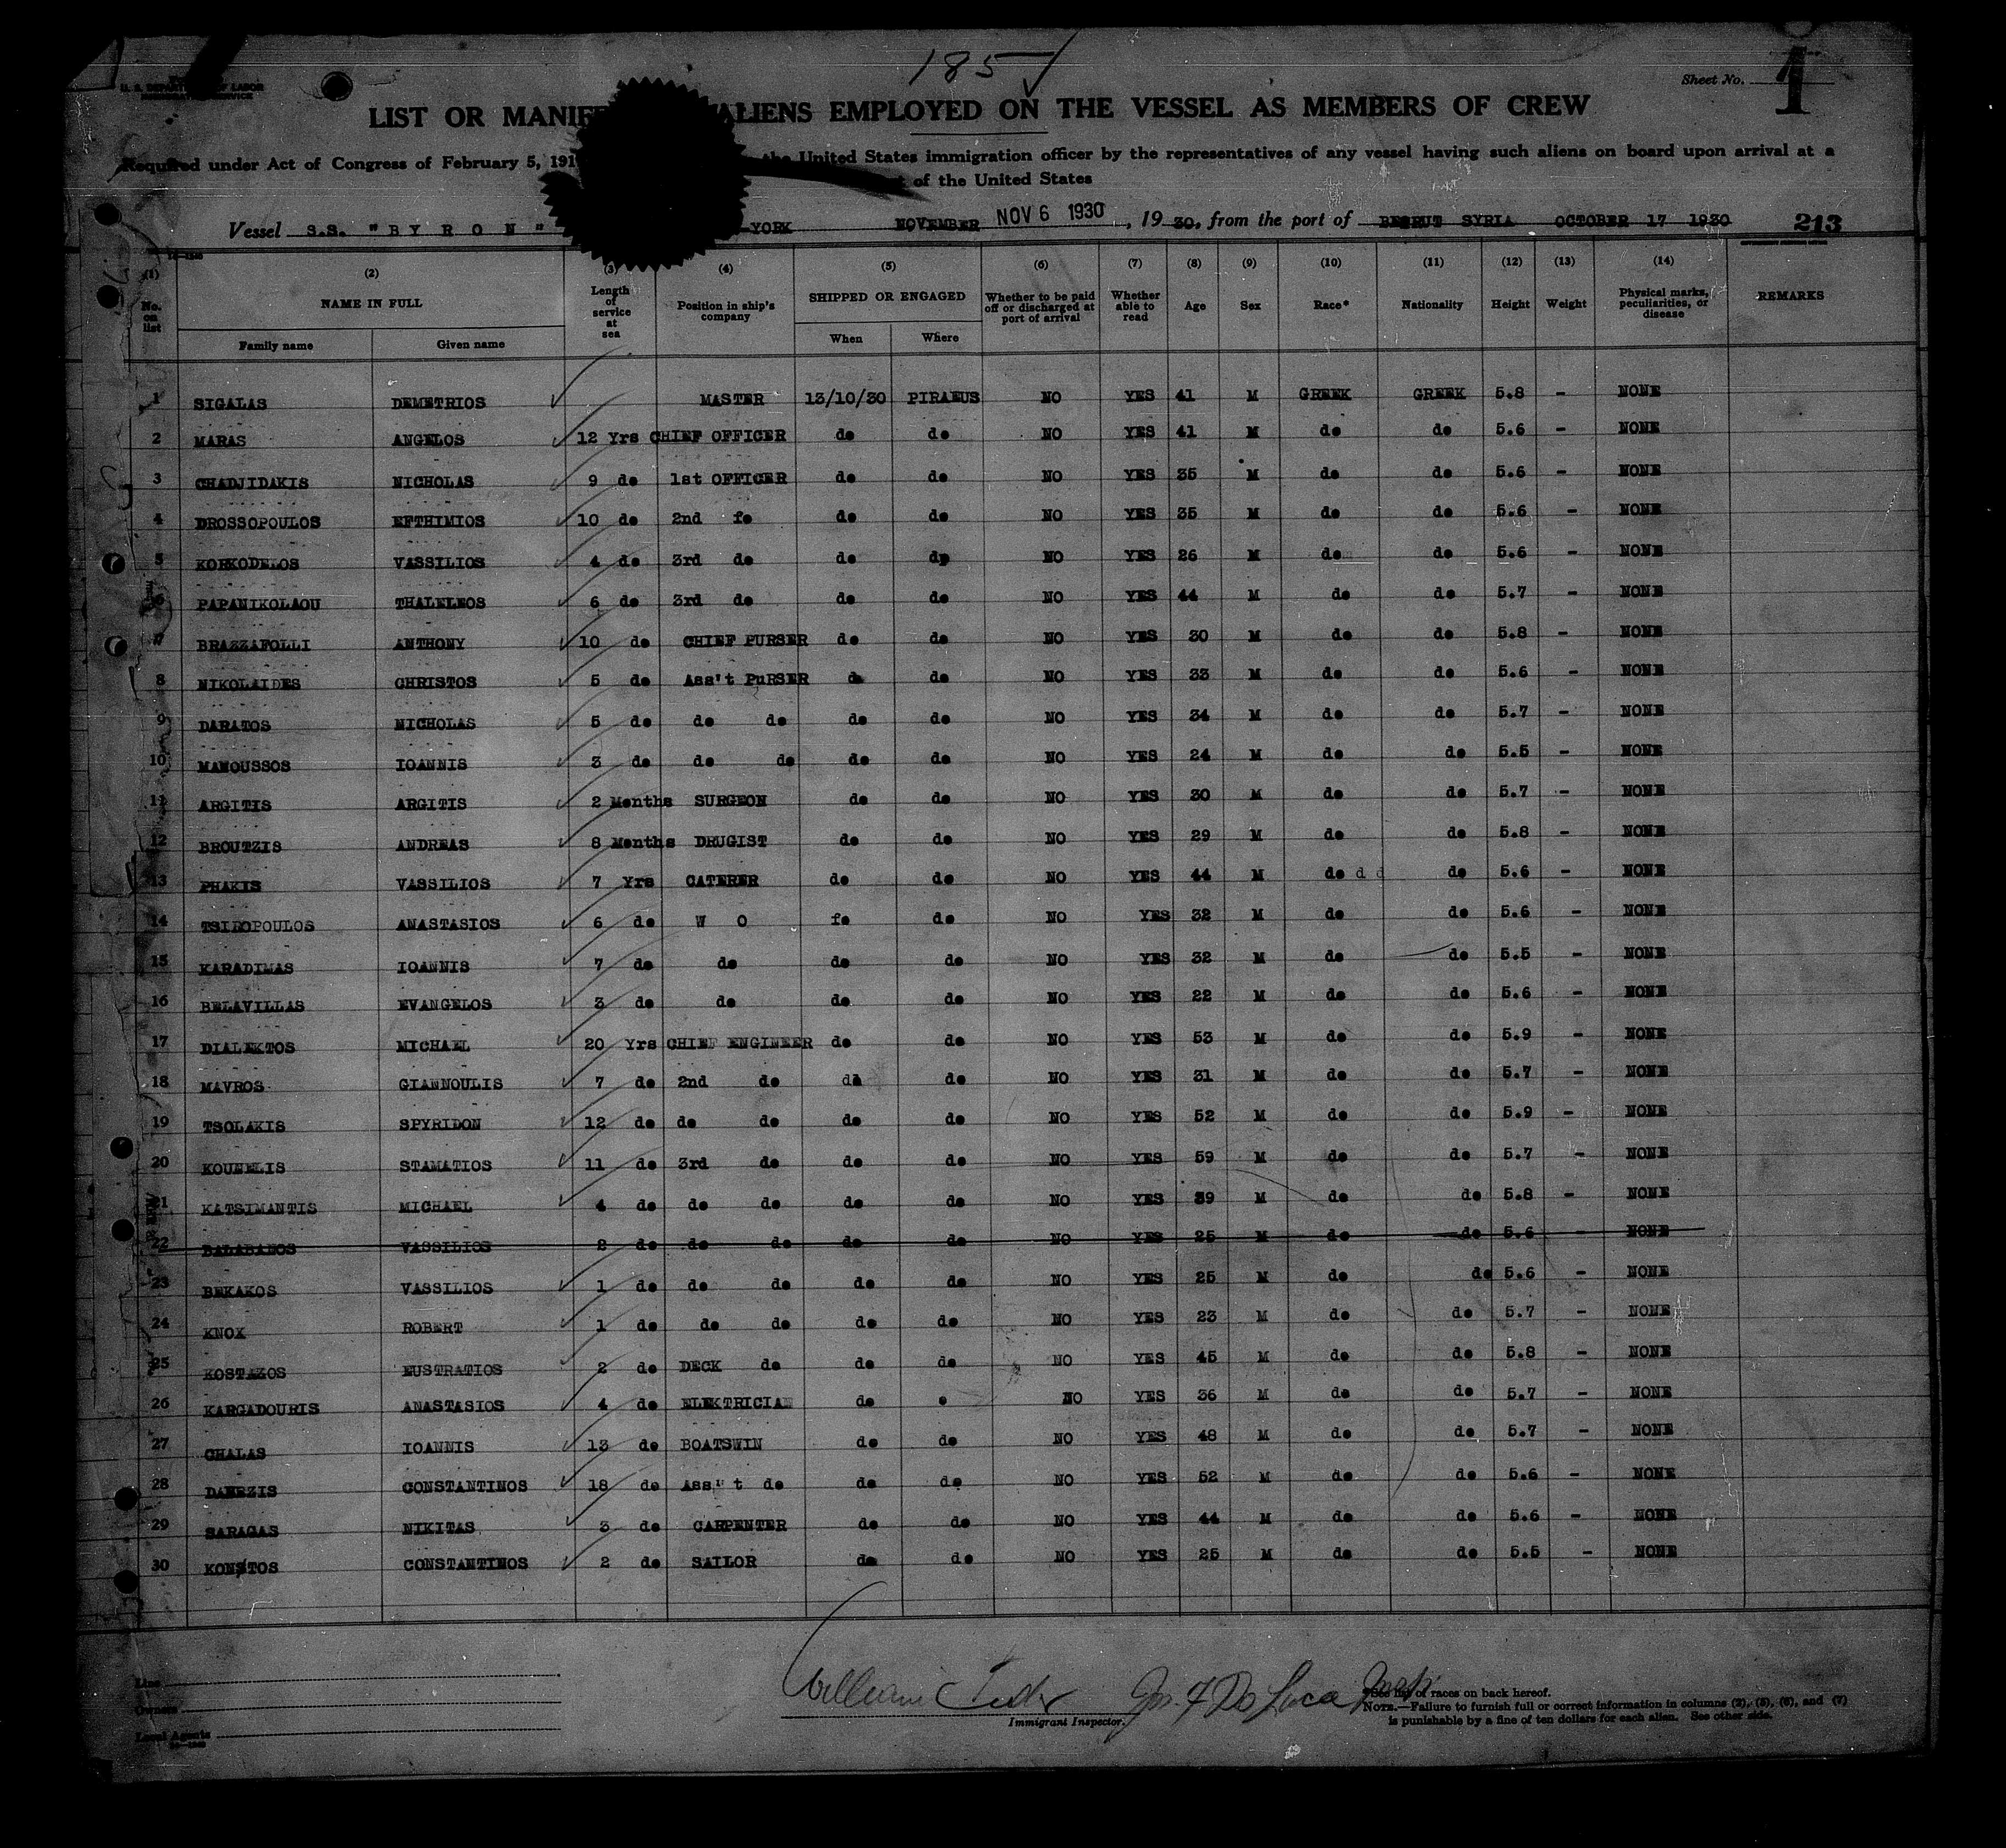 185
Sheet No. 1
U. S. DEPARTMENT OF LABOR
LIST OR MANIFE ALIENS EMPLOYED ON THE VESSEL AS MEMBERS OF CREW
Required under Act of Congress of February 5, 191 the United States immigration officer by the representatives of any vessel having such aliens on board upon arrival at a
of the United States
Vessel S.S. "BYRON" YORK NOVEMBER NOV 6 1930, 19 30, from the port of BEIRUT SYRIA OCTOBER 17 1930 213
(1) (2) (3) (4) (5) (6) (7) (8) (9) (10) (11) (12) (13) (14)
No. on list NAME IN FULL Length of service at sea Position in ship's company SHIPPED OR ENGAGED Whether to be paid off or discharged at port of arrival Whether able to read Age Sex Race* Nationality Height Weight Physical marks, peculiarities, or disease REMARKS
Family name Given name When Where
1 SIGALAS DEMETRIOS MASTER 13/10/30 PIRAEUS NO YES 41 M GREEK GREEK 5.8 - NONE
2 MARAS ANGELOS 12 Yrs CHIEF OFFICER do do NO YES 41 M do do 5.6 - NONE
3 CHADJIDAKIS NICHOLAS 9 do 1st OFFICER do do NO YES 35 M do do 5.6 - NONE
4 DROSSOPOULOS EFTHIMIOS 10 do 2nd fo do do NO YES 35 M do do 5.6 - NONE
5 KORKODELOS VASSILIOS 4 do 3rd do do dp NO YES 26 M do do 5.6 - NONE
6 PAPANIKOLAOU THALELEOS 6 do 3rd do do do NO YES 44 M do do 5.7 - NONE
7 BRAZZAFOLLI ANTHONY 10 do CHIEF PURSER do do NO YES 30 M do do 5.8 - NONE
8 NIKOLAIDES CHRISTOS 5 do Ass't PuRSER do do NO YES 33 M do do 5.6 - NONE
9 DARATOS NICHOLAS 5 do do do do do NO YES 34 M do do 5.7 - NONE
10 MANOUSSOS IOANNIS 3 do do do do do NO YES 24 M do do 5.5 - NONE
11 ARGITIS ARGITIS 2 Months SURGEON do do NO YES 30 M do do 5.7 - NONE
12 BROUTZIS ANDREAS 8 Months DRUGIST do do NO YES 29 M do do 5.8 - NONE
13 PHAKIS VASSILIOS 7 Yrs CATERER do do NO YES 44 M do d d do 5.6 - NONE
14 TSILOPOULOS ANASTASIOS 6 do W O fo do NO YES 32 M do do 5.6 - NONE
15 KARADIMAS IOANNIS 7 do do do do NO YES 32 M do do 5.5 - NONE
16 BELAVILLAS EVANGELOS 3 do do do do NO YES 22 M do do 5.6 - NONE
17 DIALEKTOS MICHAEL 20 Yrs CHIEF ENGINEER do do NO YES 53 M do do 5.9 - NONE
18 MAVROS GIANNOULIS 7 do 2nd do do do NO YES 31 M do do 5.7 - NONE
19 TSOLAKIS SPYRIDON 12 do do do do do NO YES 52 M do do 5.9 - NONE
20 KOUHELIS STAMATIOS 11 do 3rd do do do NO YES 59 M do do 5.7 - NONE
21 KATSIMANTIS MICHAEL 4 do do do do do NO YES 39 M do do 5.8 - NONE
22 BALABANOS VASSILIOS 2 do do do do do NO YES 25 M do do 5.6 - NONE
23 BEKAKOS VASSILIOS 1 do do do do do NO YES 25 M do do 5.6 - NONE
24 KNOX ROBERT 1 do do do do do NO YES 23 M do do 5.7 - NONE
25 KOSTAKOS EUSTRATIOS 2 do DECK do do do NO YES 45 M do do 5.8 - NONE
26 KARGADOURIS ANASTASIOS 4 do ELEKTRICIAN do o NO YES 36 M do do 5.7 - NONE
27 CHALAS IOANNIS 13 do BOATSWIN do do NO YES 48 M do do 5.7 - NONE
28 CONSTANTINOS 18 do Ass't do do do NO YES 52 M do do 5.6 - NONE
29 SARAGAS NIKITAS 3 do CARPENTER do do NO YES 44 M do do 5.6 - NONE
30 KONSTOS CONSTANTINOS 2 do SAILOR do do NO YES 25 M do do 5.5 - NONE
Line
Owners
Local Agents
William
Immigrant Inspector.
*See list of races on back hereof.
NOTE.—Failure to furnish full or correct information in columns (2), (5), (6), and (7)
is punishable by a fine of ten dollars for each alien. See other side.